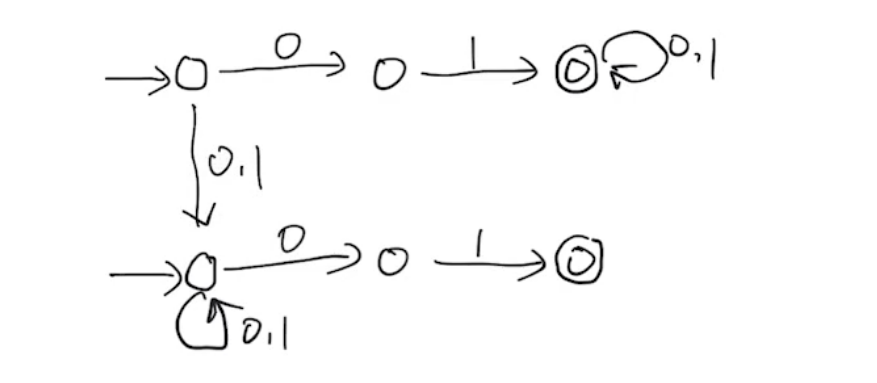 0 1 0,1
0,1
0 1
0,1